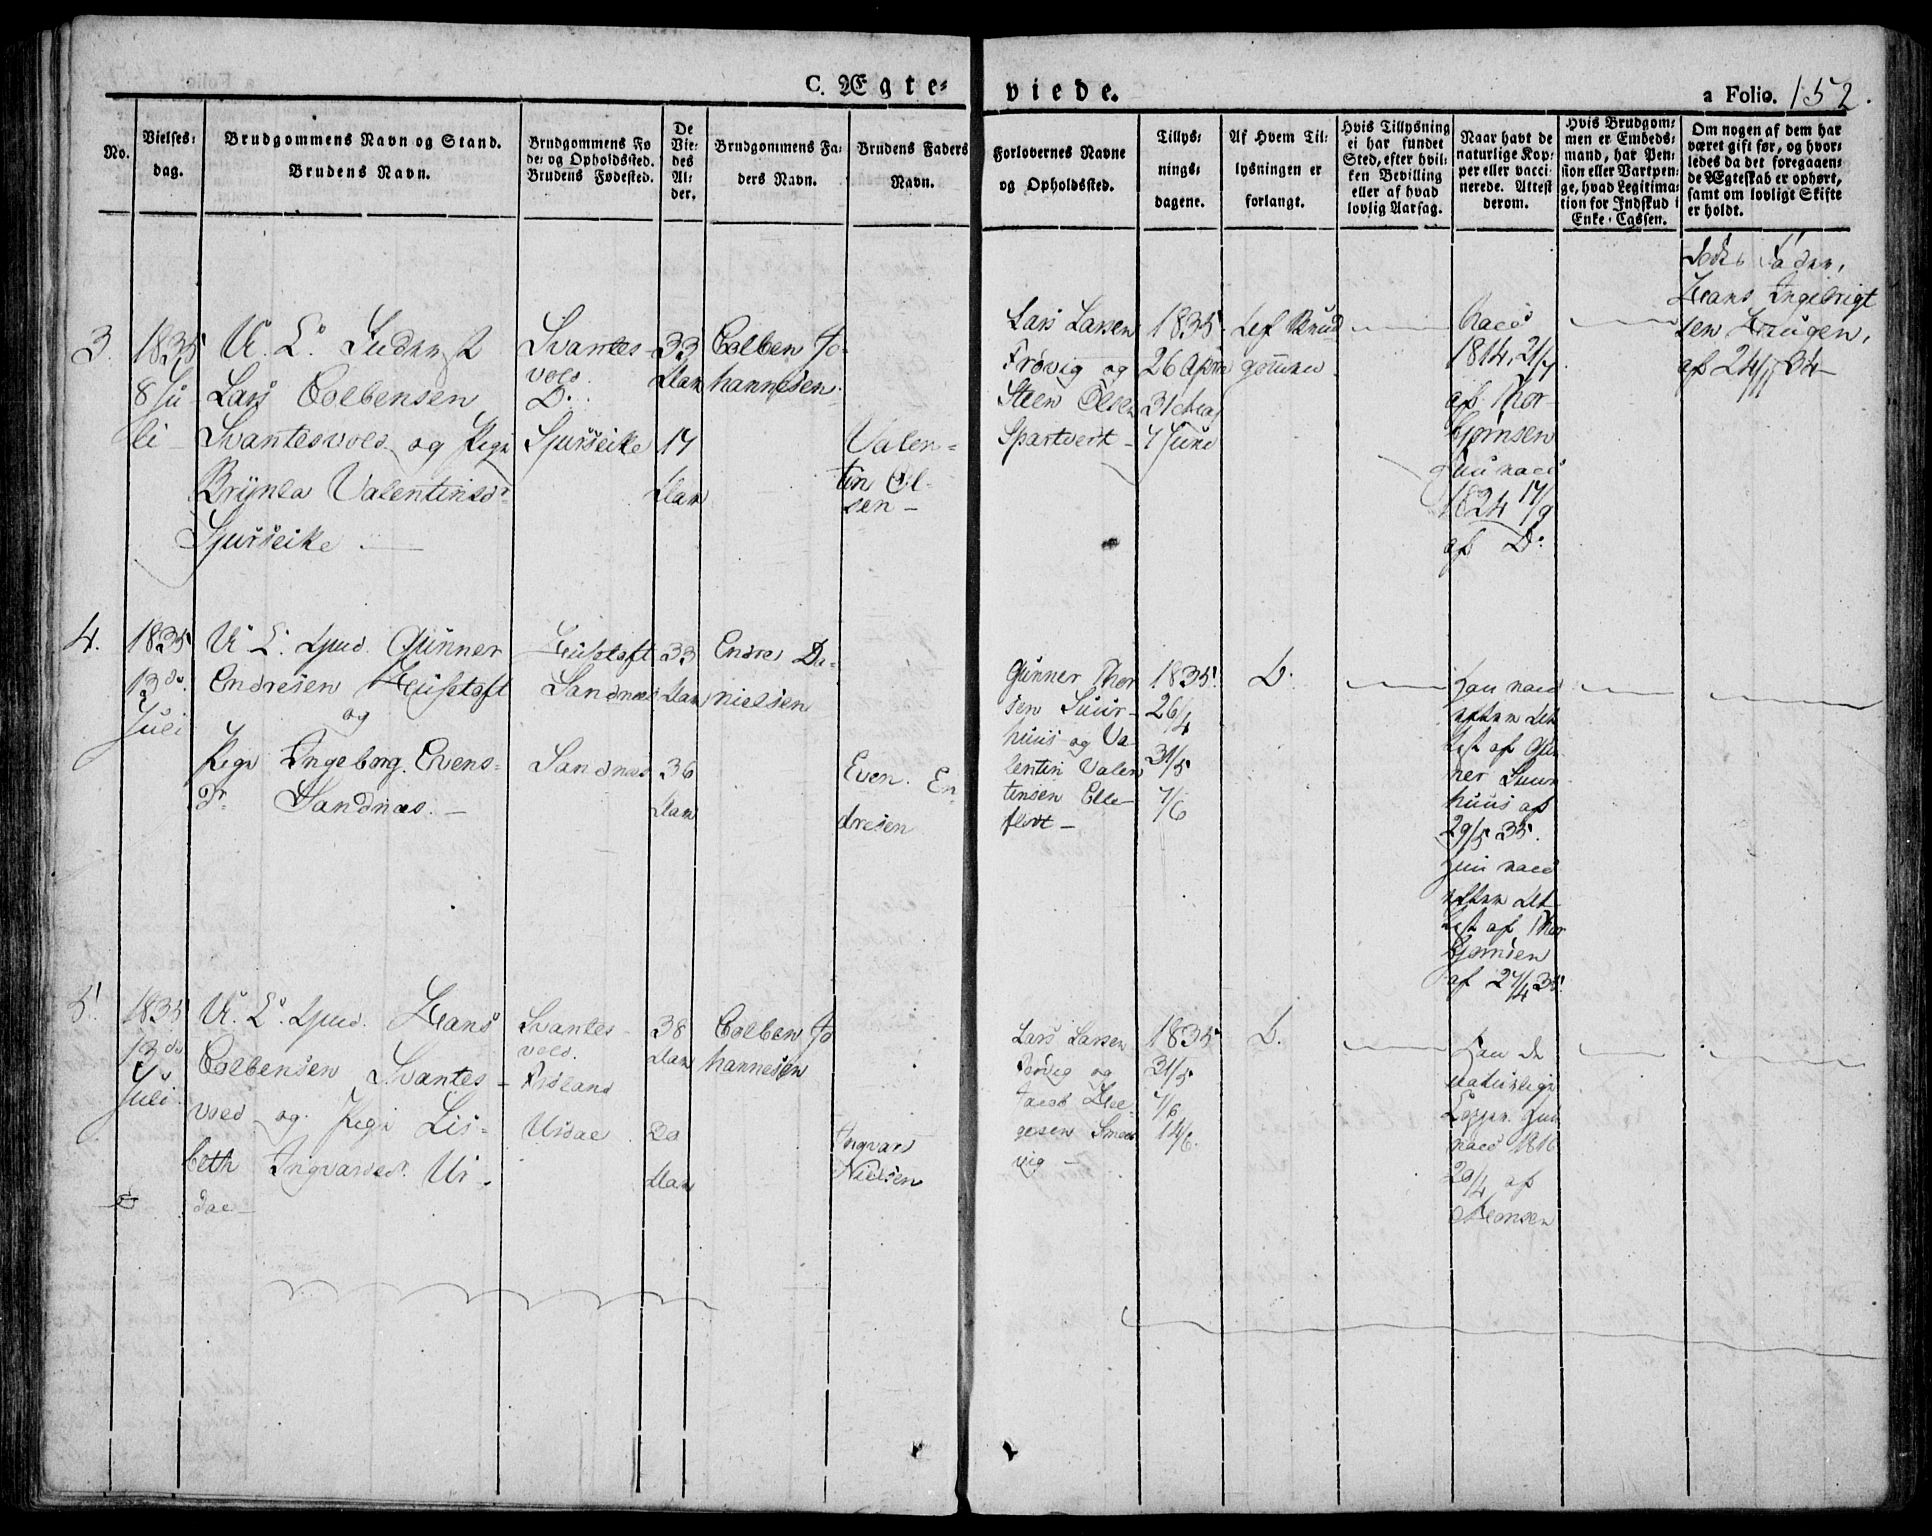 C. Ægte-
viede.
a Folio. 152.
No.
Vielses-
dag.
Brudgommens Navn og Stand.
Brudens Navn.
Brudgommens Fø
de- og Opholdssted.
Brudens Fødested.
De
Vie-
des
Al-
der.
Brudgommens Fa-
ders Navn.
Brudens Faders
Navn.
Forlovernes Navne
og Opholdssted.
Tillys-
nings-
dagene.
Af Hvem Til-
lysningen er
forlangt.
Hvis Tillysning
ei har fundet
Sted, efter hvil-
ken Bevilling
eller af hvad
lovlig Aarsag.
Naar havt de
naturlige Kop-
per eller vacci-
nerede. Attest
derom.
Hvis Brudgom-
men er Embeds-
mand, har Pen-
sion eller Vartpen-
ge, hvad Legitima-
tion for Indskud i
Enke-Cassen.
Om nogen af dem har
været gift før, og hvor-
ledes da det foregaaen-
de Ægteskab er ophørt,
samt om lovligt Skifte
er holdt.
Hans Ingebrigt
sen Haugen,
af 24/11 34
3.
1835
8 Ju
li
U. C.
Lars Colbensen
Svantesvold og Pige
Valentinsdr
Sjurseike
Svantes-
vold
D.
Sjurseike
33
Aar
17
Aar
Colben Jo-
hannesen
Valen-
tin Ol-
sen
Lars Larsen
Frøvig og
Steen Olsen
Spartvert
1835
26 April
31 Maj
7 Juni
Lef Brud
gommen
Vacc
1814, 21/7
af Thor-
bjørnsen
Hun vacc
1824 17/9
af Do
4.
1835
13de
Juli
U C. Gunner
Endresen Heustoft
og
Pige Ingeborg Evens-
dr Sandnæs.
Heustoft
Sandnæs
Sandnæs
33
Aar
36
Aar
Endre Da-
nielsen
Even En-
dresen
Gunner Thor
sen Suur-
huus og Va
lentin Valen
tensen Elle-
flodt
1835
26/4
31/5
7/6
D.
Han vacc
efter At-
test af Gun
ner Suur
huus af
29/5 35.
Hun vacc
efter At-
test af Thor
bjørnsen
af 27/4 35.
5.
1835
13de
Juli
U. C. Hans
Colbensen Svantes-
vold og Pige Lis-
beth Ingvarsdr. Ur-
dal
Svantes-
vold.
Urdal
38
Aar
20
Aar
Colben Jo
hannesen
Ingvar
Nielsen
Lars Larsen
Frøvig og
Jacob Hel-
gesen Smeds
vig
1835
31/5
7/6
14/6.
D.
Han de
naturlige
Copper. Hun
vacc 1816
29/4 af